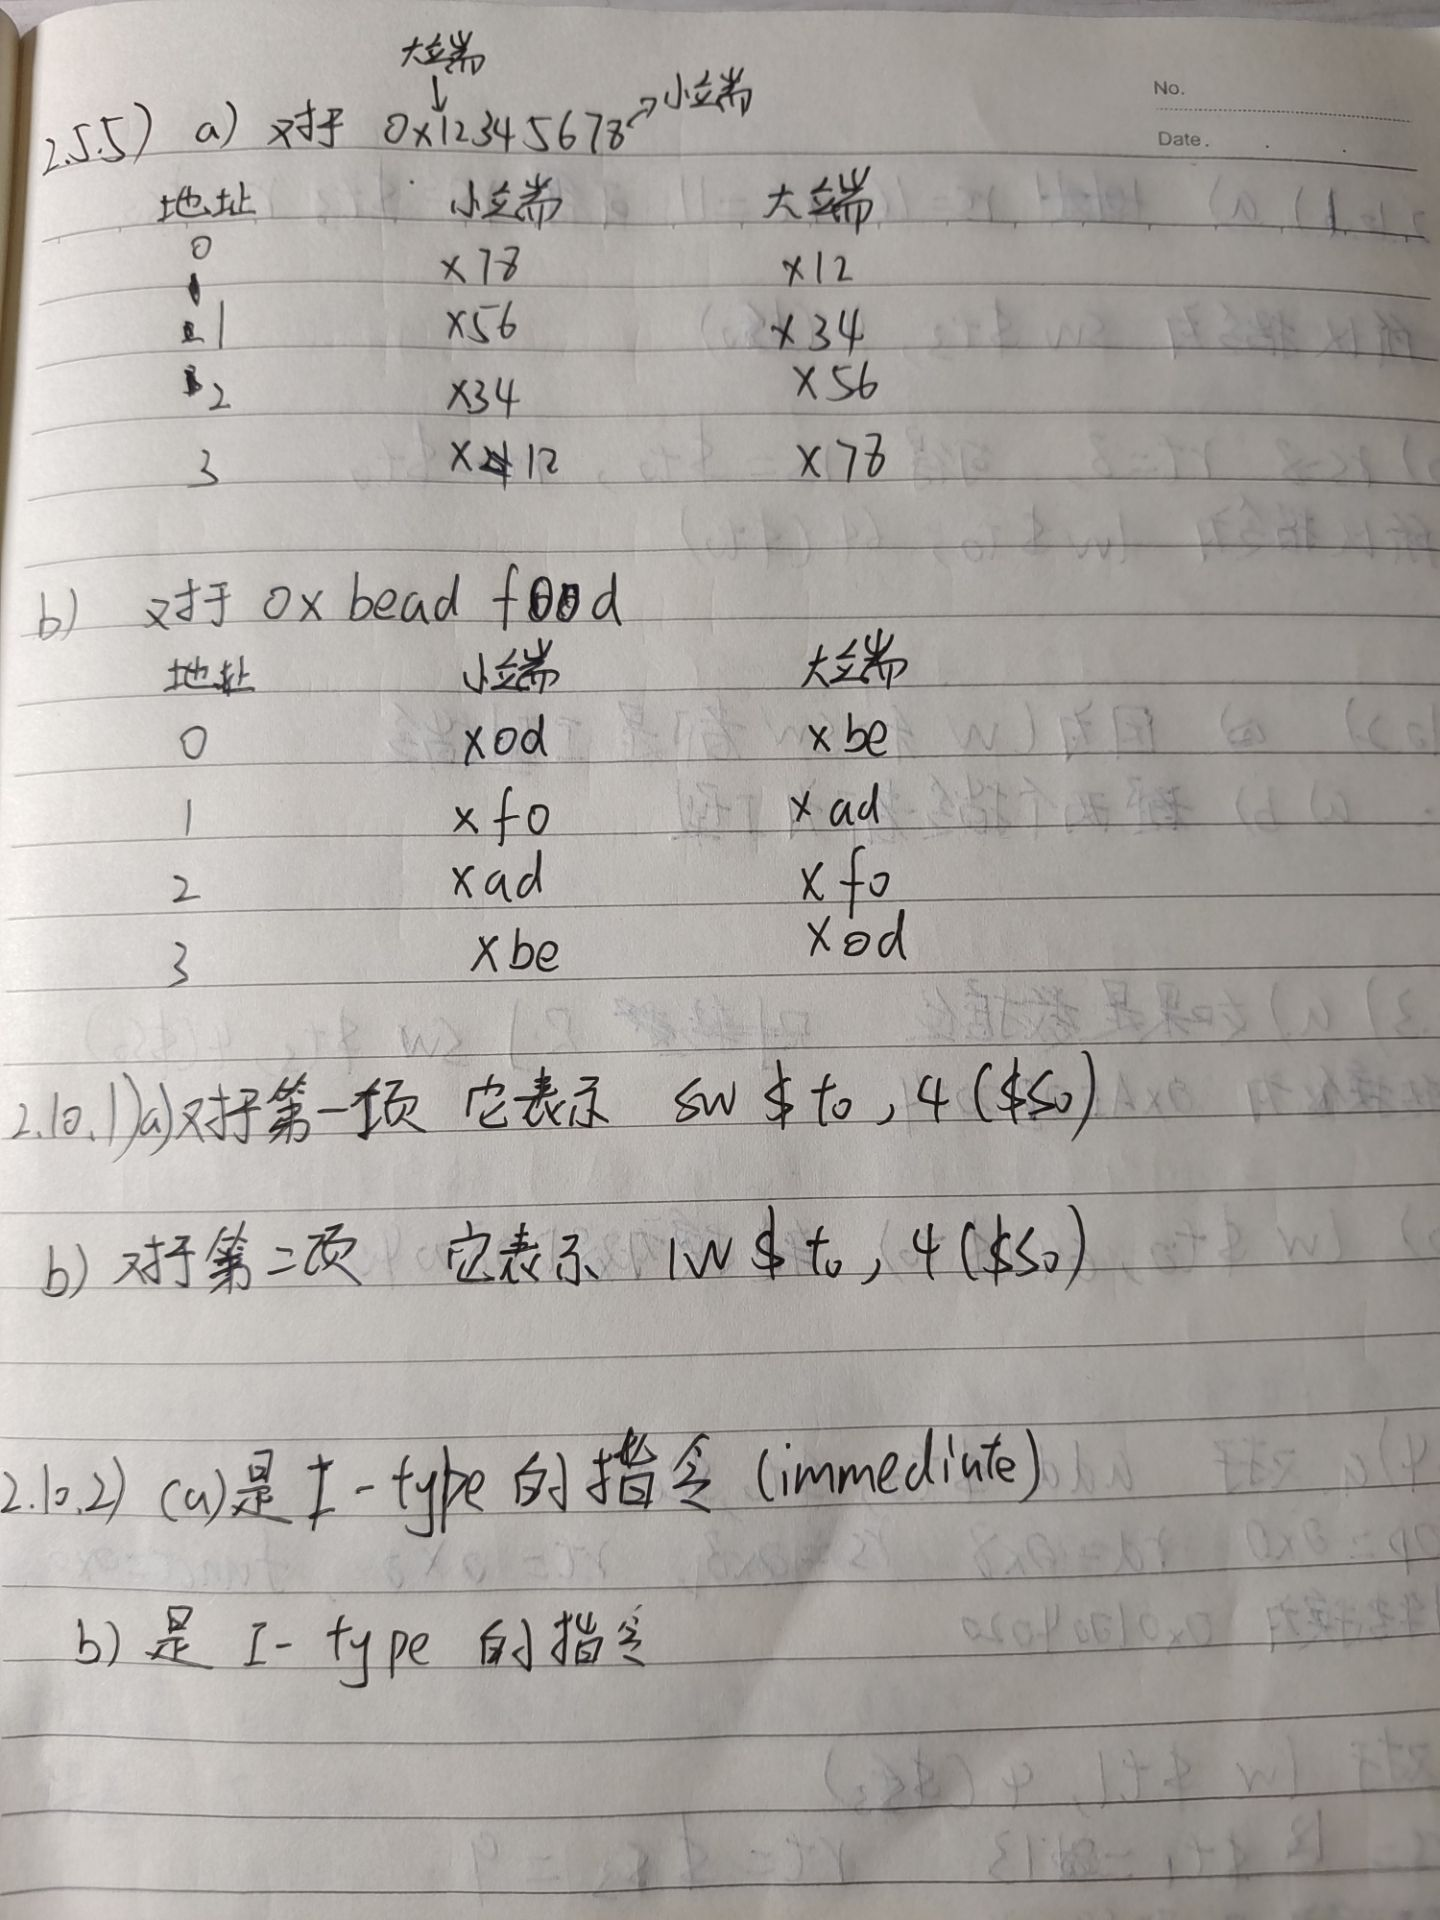 大端
小端
No.
Date.
2.5.5) a) 对于 0x12345678
地址 小端 大端
0 x78 x12
1 x56 x34
2 x34 x56
3 x12 x78
b) 对于 0x bead f00d
地址 小端 大端
0 x0d xbe
1 xf0 xad
2 xad xf0
3 xbe x0d
2.10.1) a) 对于第一项 它表示 sw $t0, 4($s0)
b) 对于第二项 它表示 lw $t0, 4($s0)
2.10.2) (a) 是 I-type 的指令 (immediate)
b) 是 I-type 的指令